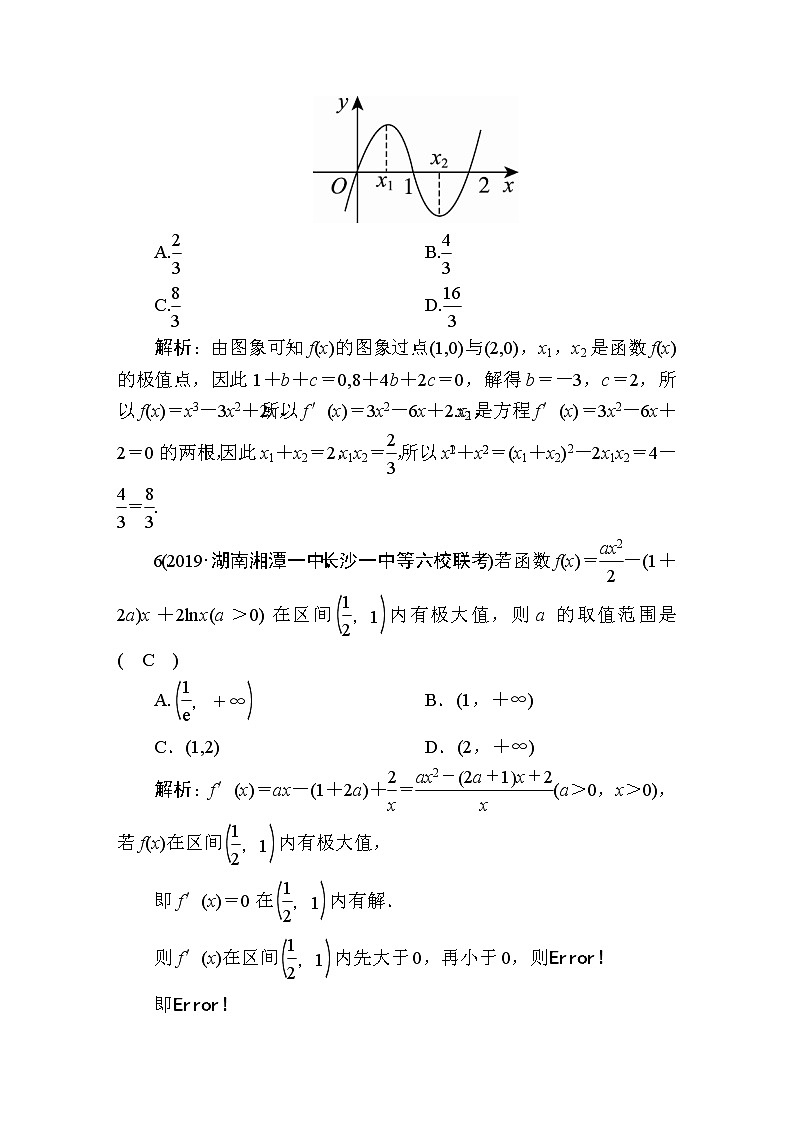 y
x₂
O x₁ 1 2 x
A.2/3 B.4/3
C.8/3 D.16/3
解析：由图象可知 f(x)的图象过点(1,0)与(2,0)，x₁，x₂ 是函数 f(x)
的极值点，因此 1＋b＋c＝0,8＋4b＋2c＝0，解得 b＝－3，c＝2，所
以 f(x)＝x³－3x²＋2 所以 f′(x)＝3x²－6x＋2. 是方程 f′(x)＝3x²－6x＋
2＝0 的两根,因此 x₁＋x₂＝2,x₁x₂＝2/3,所以 x²＋x²＝(x₁＋x₂)²－2x₁x₂＝4－
4/3＝8/3.
6(2019·湖南湘潭一中长沙一中等六校联考)若函数 f(x)＝ax²/2－(1＋
2a)x＋2lnx(a＞0) 在区间(1/2，1)内有极大值，则 a 的取值范围是
( C )
A.(1/e，＋∞) B．(1，＋∞)
C．(1,2) D．(2，＋∞)
解析：f′(x)＝ax－(1＋2a)＋2/x＝(ax²－(2a＋1)x＋2)/x(a＞0，x＞0)，
若 f(x)在区间(1/2，1)内有极大值，
即 f′(x)＝0 在(1/2，1)内有解．
则 f′(x)在区间(1/2，1)内先大于0，再小于0，则Error!
即Error!